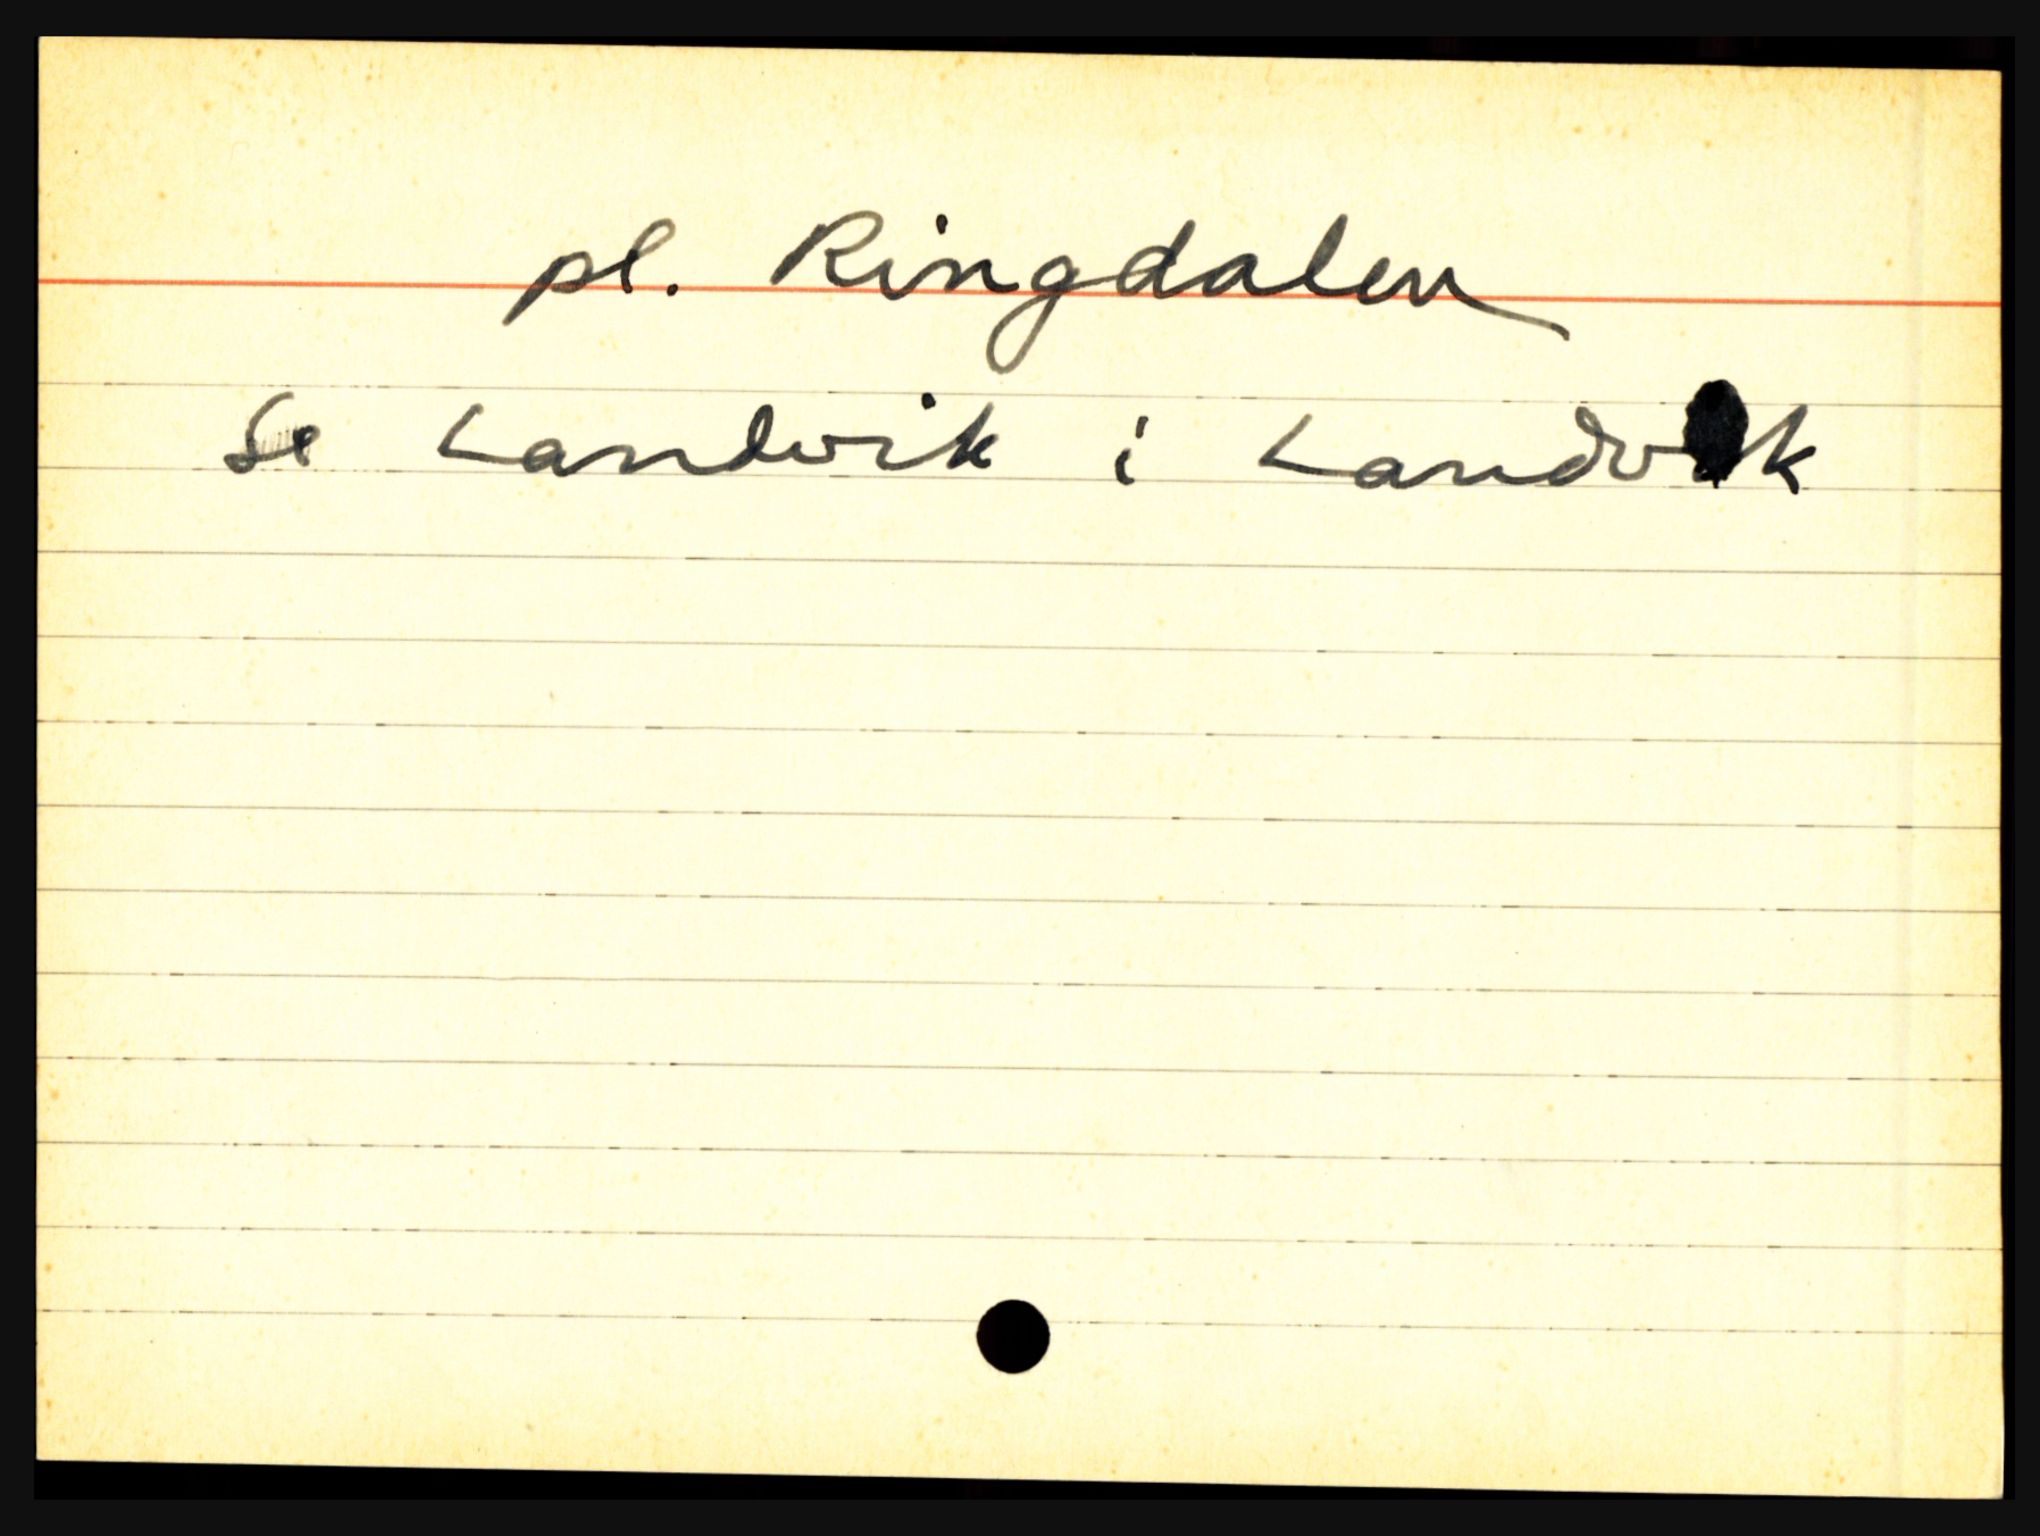 pl. Ringdalen
Se Landvik i Landvik